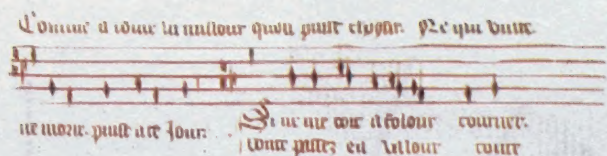 Comme a toute la millour quon puist choysir. Ne qui vuite
ne morir. puist a ce Jour. Si ne me doit a folour tourner.
toute passez en vallour toute